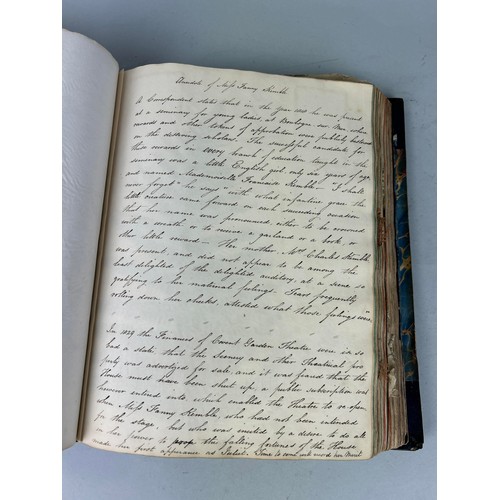 Anecdote of Miss Fanny Kemble
A Correspondent states that in the year he was present
at a seminary for young ladies, at Boulogne sur Mer, when
rewards and other tokens of approbation were publicly bestowed
on the deserving scholars. The successful candidate for
these rewards in every branch of education taught in the
seminary was a little English girl only six years of age,
and named Mademoiselle Françoise Kemble. "I shall
never forget" he says "with what infantine grace the
little creature came forward on each succeeding occasion
that her name was pronounced either to be crowned
with a wreath or to receive a garland or a book, or
other little reward — Her mother Mrs Charles Kemble
was present, and did not appear to be among the
least delighted of the delighted auditory, at a scene so
gratifying to her maternal feelings. Tears frequently
rolling down her cheeks, attested what those feelings were."
In 1829 the Finances of Covent Garden Theatre were in so
bad a state that the Scenery and other Theatrical pro
perty was advertized for sale, and it was feared that the
House must have been shut up, a public subscription was
however entered into which enabled the Theatre to re open
when Miss Fanny Kemble, who had not been intended
for the stage, but who was excited by a desire to do all
in her power to prop the falling fortunes of the House
made her first appearance as Juliet.